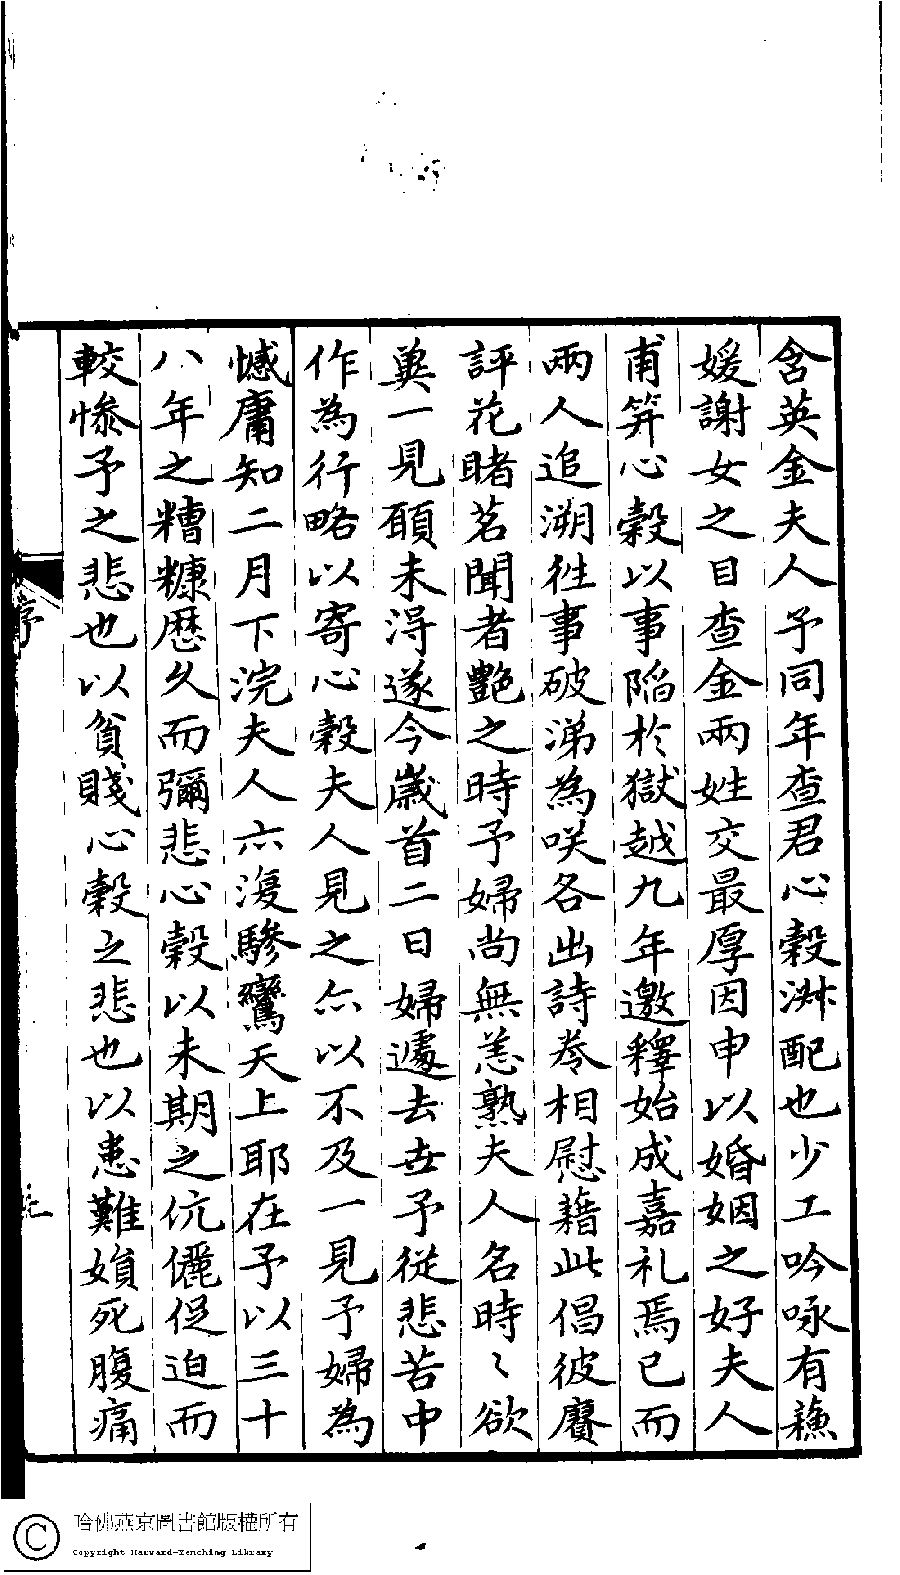 含英金夫人予同年查君心穀淋配也少工吟咏有蘓
媛謝女之目查金兩姓交最厚因申以婚姻之好夫人
甫笄心穀以事陷於獄越九年邀釋始成嘉礼焉已而
兩人追溯徃事破涕為咲各出詩卷相慰藉此倡彼賡
評花睹茗聞者艷之時予婦尚無恙熟夫人名時〻欲
兾一見願未淂遂今歲首二日婦遽去世予從悲苦中
作為行略以寄心穀夫人見之亦以不及一見予婦為
憾庸知二月下浣夫人亦復驂鸞天上耶在予以三十
八年之糟糠歴久而彌悲心穀以未期之伉儷促迫而
較慘予之悲也以貧賤心穀之悲也以患難嬪死腹痛
序
哈佛燕京圖書館版權所有
Copyright Harvard-Yenching Library